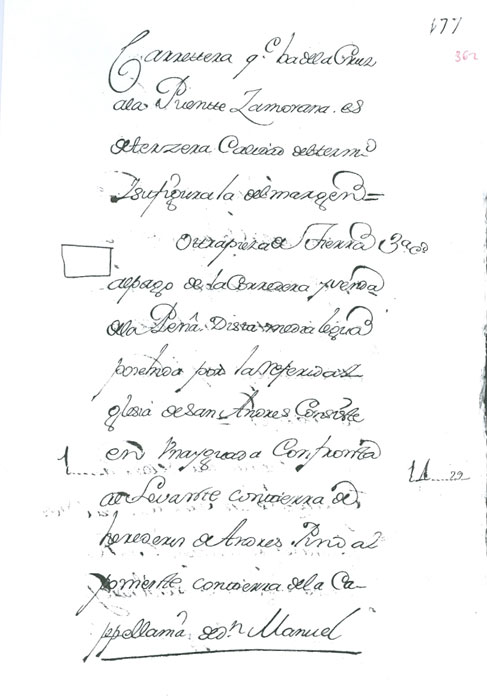 177
362
Carretera q.e ba de la Cruz
a la Puente Zamorana. es
de terzera Calidad del term.o
Y su figura la del margen =
Otra pieza de Tierra 3.a
al pago de la Carrera
de la Peña Dista media legua
por la referida Y
glesia de San Andres Consiste
1 en una Confronta 11 29
al Levante con tierra de
herederos de Andres Pino al
poniente con tierra de la Ca-
pellania de d.n Manuel